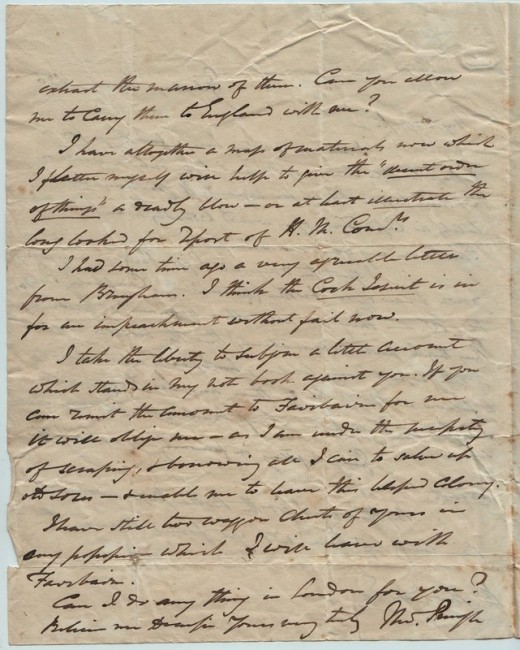 extract the marrow of them. Can you allow
me to carry them to England with me?
I have altogether a mass of materials now which
I flatter myself will help to give the "decent order
of things" a deadly blow – or at least illustrate the
long looked for Report of H. M. Comrs
I had some time ago a very agreeable letter
from Brougham. I think the Cock is in
for an impeachment without fail now.
I take the liberty to subjoin a little account
which stands in my note book against you. If you
can remit the amount to Fairbairn for me
it will oblige me – as I am under the necessity
of scraping, & borrowing all I can to
old – & enable me to leave this blessed Colony.
I have still two waggon chests of yours in
my possession which I will leave with
Fairbairn.
Can I do any thing in London for you?
Believe me Dear Yours very truly Tho. Pringle